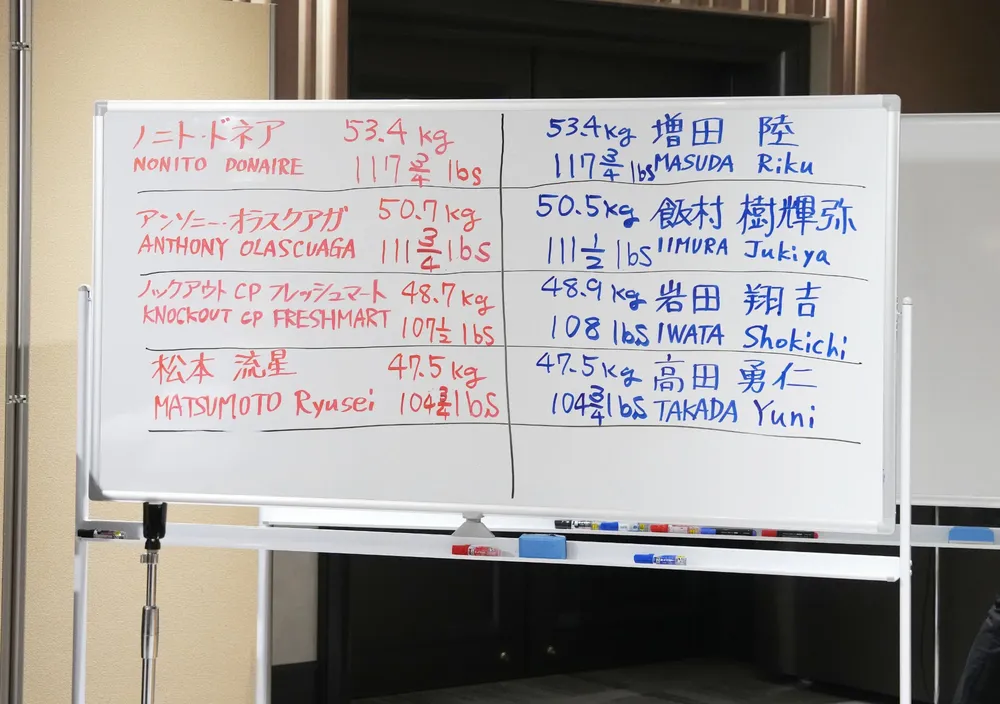 ノニト・ドネア 53.4 kg
NONITO DONAIRE 117 3/4 lbs
53.4kg 増田 陸
117 3/4 lbs MASUDA Riku
アンソニー・オラスクアガ 50.7 kg
ANTHONY OLASCUAGA 111 3/4 lbs
50.5kg 飯村 樹輝弥
111 1/2 lbs IIMURA Jukiya
ノックアウト CP フレッシュマート 48.7 kg
KNOCKOUT CP FRESHMART 107 1/2 lbs
48.9 kg 岩田 翔吉
108 lbs IWATA Shokichi
松本 流星 47.5 kg
MATSUMOTO Ryusei 104 3/4 lbs
47.5 kg 高田 勇仁
104 3/4 lbs TAKADA Yuni